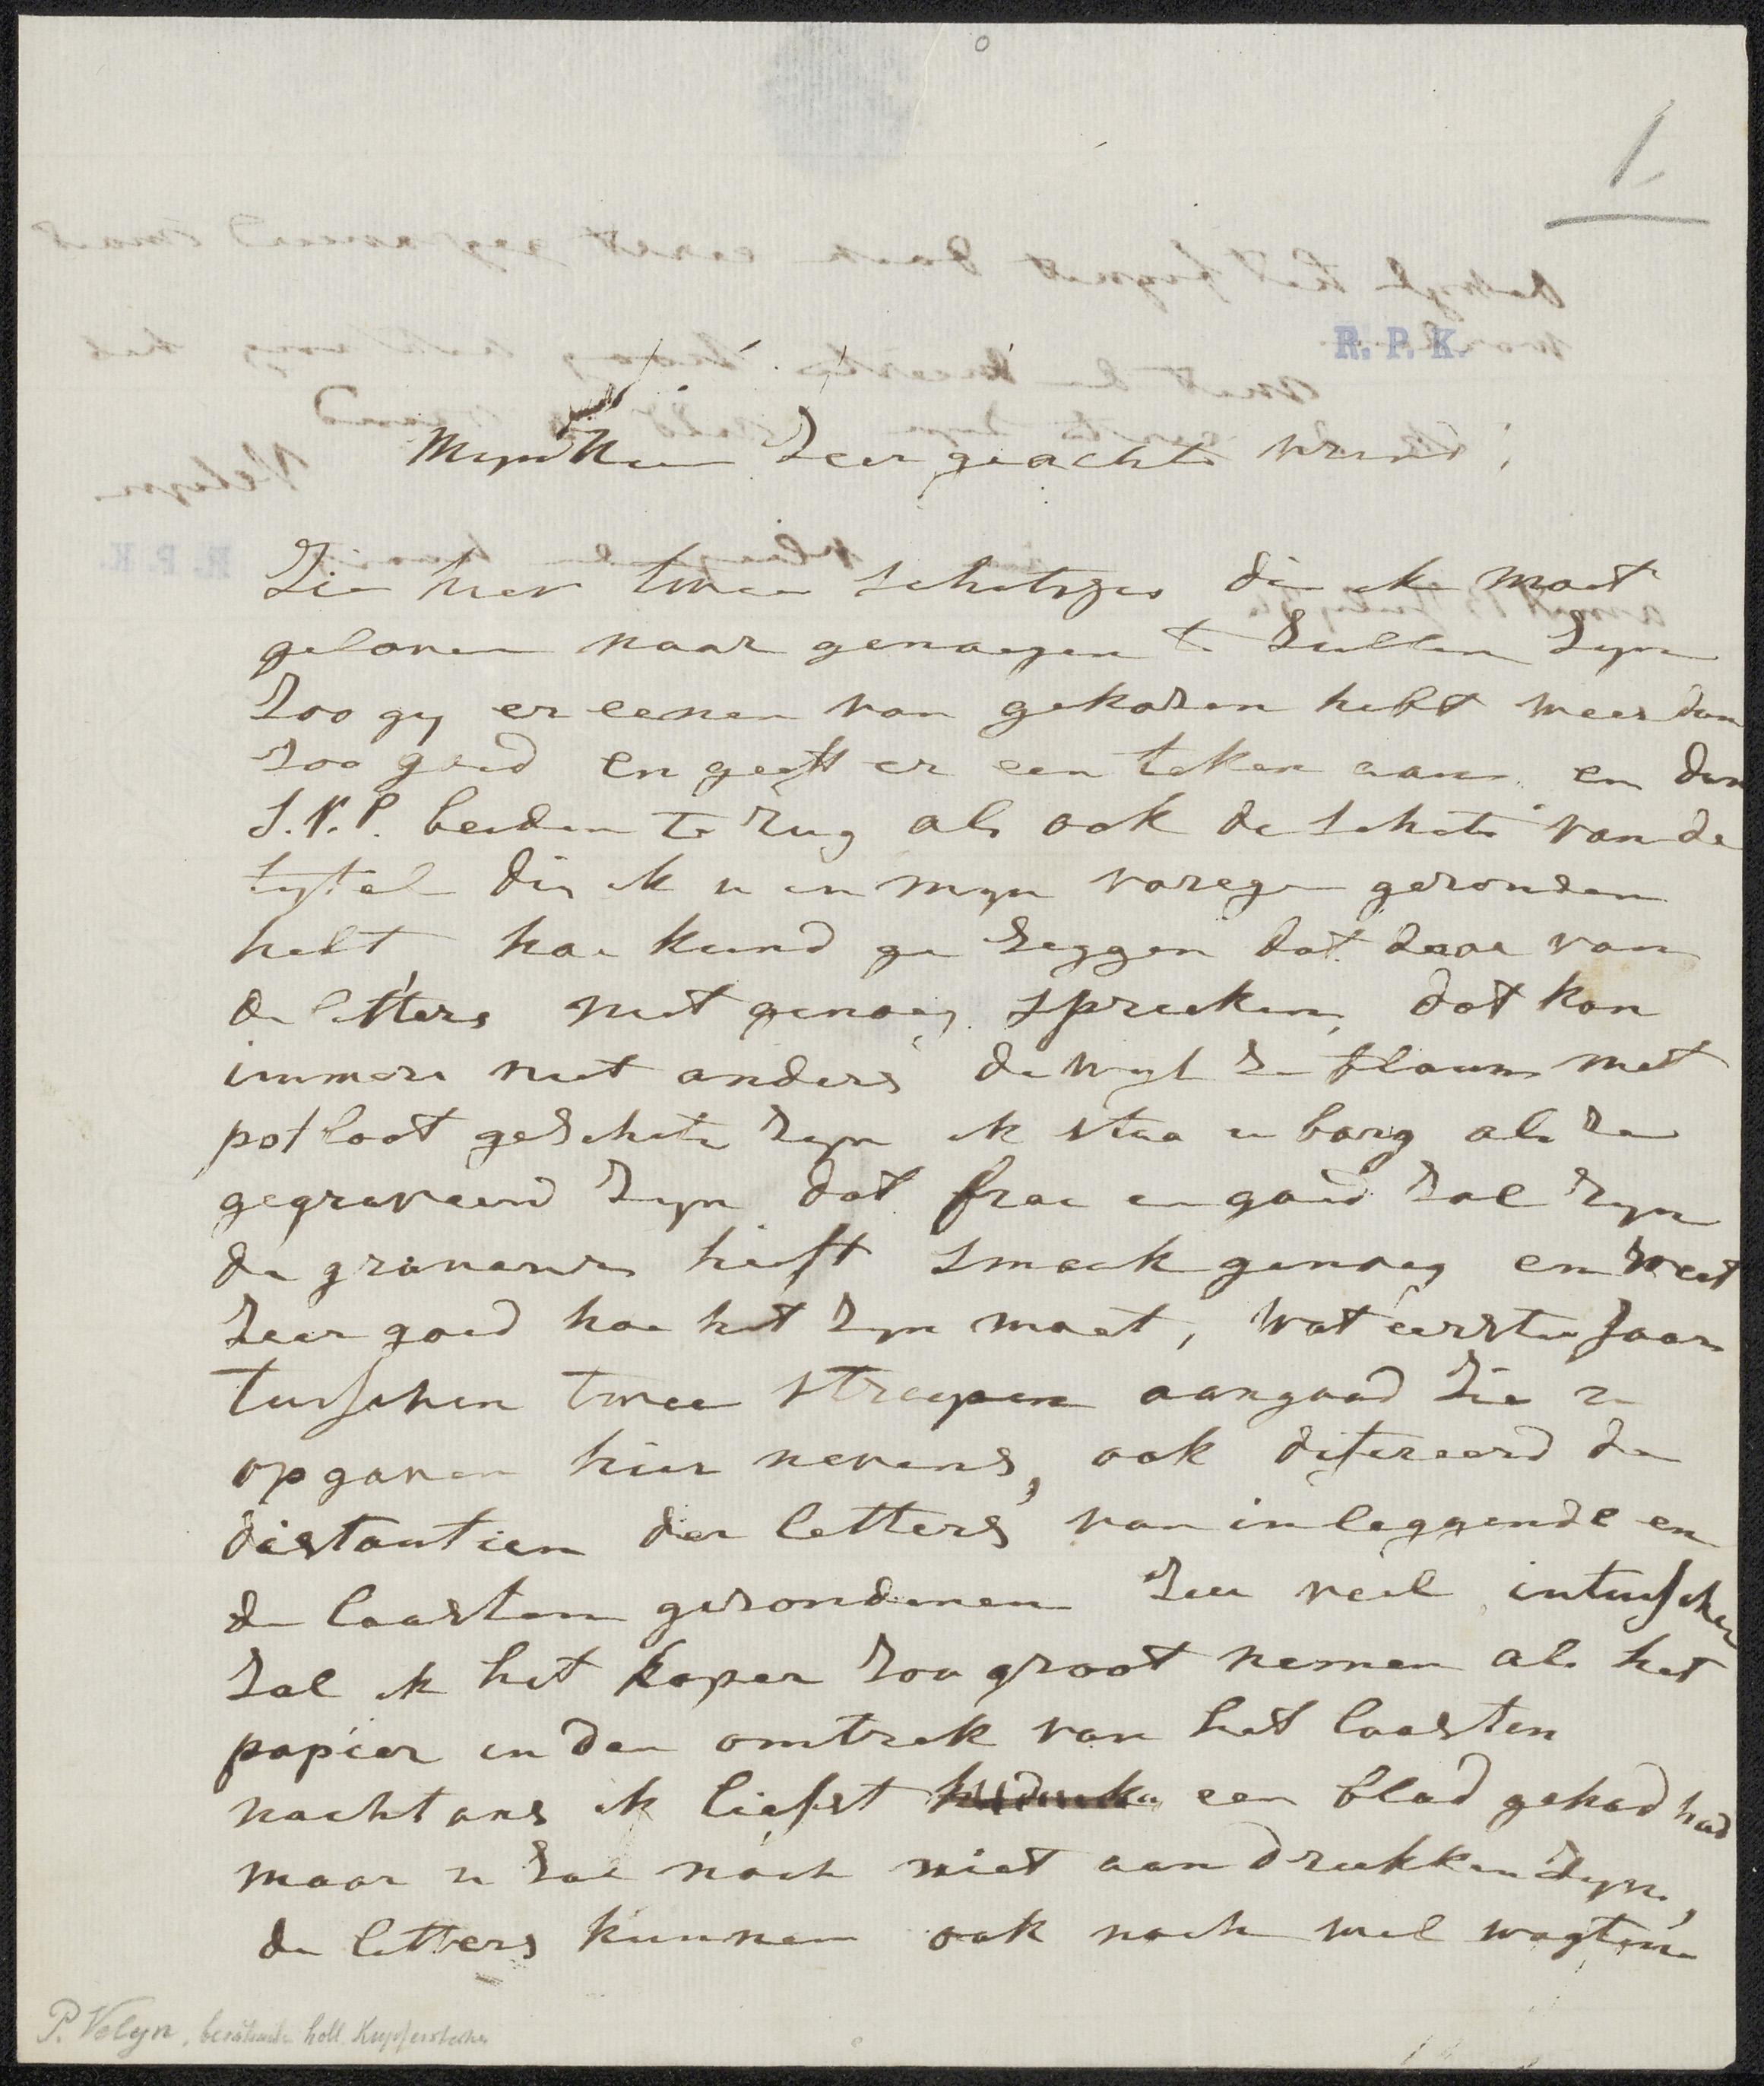 1
R. P. K.
Mynheer Zeer geachte vriend;
Zie hier twee schetsjes die ik moet
geloven naar genoegen te zullen zyn
zoo gy er eenen van gekozen hebt wees dan
zoo goed en geeft er een teken aan en dan
S.V.P. beiden te rug als ook de schets van de
tytel die ik u in myn vorege gezonden
hebt hoe kund ge zeggen dat deze van
de letters niet genoeg spreeken, dat kan
immers niet anders dewyl ze flauw met
potloot geschets zyn ik staa u borg als ze
gegraveerd zyn dat frae en goed zal zyn
de graveur heeft smaek genoeg en weet
zeer goed hoe het zyn moet, wat eerste jaar
tusschen twee streepen aangaad zie u
opgaven hier nevens, ook difereerd de
distantien der letters van inleggende en
de laasten gezondenen zeer veel intusschen
zal ik het koper zoo groot nemen als het
papier in den omtrek van het laasten
nochtans ik liefst een blad gehad had
maar u zal noch niet aan drukken zyn,
de letters kunnen ook noch wel wagten
P. Velyn, berühmter holl. Kupferstecher